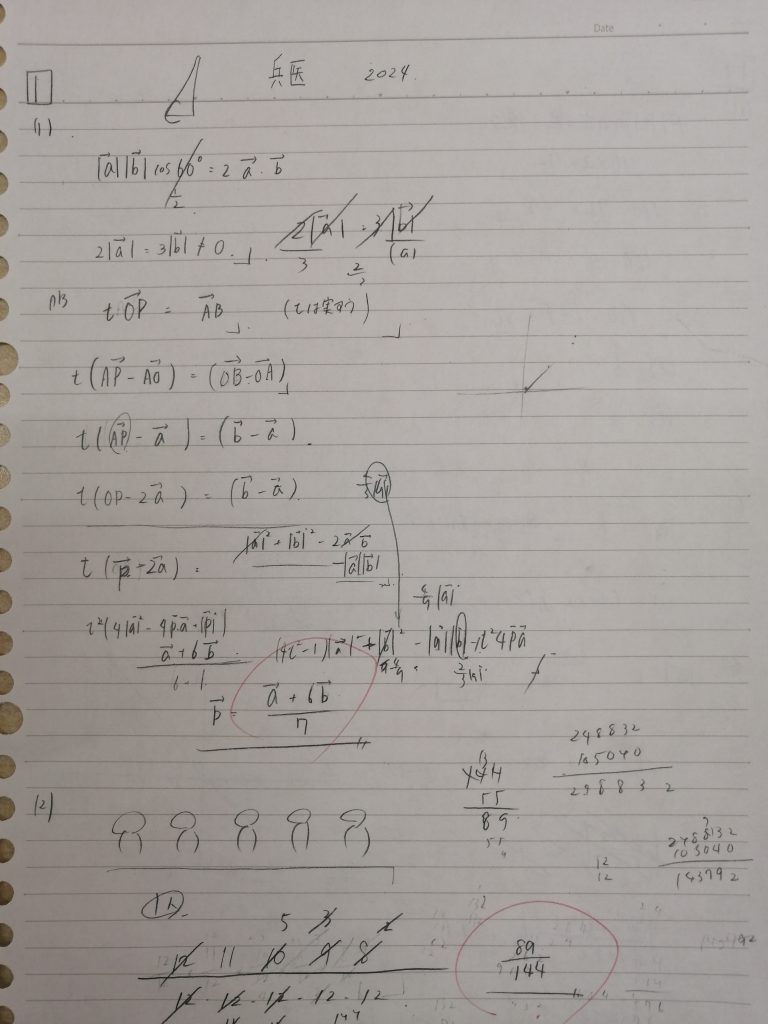 Date
1
兵医 2024.
(1)
|a||b| cos60° = 2 a・b
1/2
2|a| = 3|b| ≠ 0.
2|a| = 3|b|
3 |a|
t OP = AB (tは実数)
t(AP - AO) = (OB - OA)
t(AP - a) = (b - a).
t(OP - 2a) = (b - a)
t(p - 2a) =
|a|² + |b|² - 2a b
- |a||b|
4/9 |a|²
t²(4|a|² - 4p・a + |p|²)
a + 6b
(4t² - 1)|a|² + |b|² - |a||b| - t²4pa
2/3 |a|
p = (a + 6b)/7
144
55
89
248832
105040
298832
(2)
248832
105040
143792
12
12
1人
5 3 2
12 11 10 9 8
12・12・12・12・12
144
89/144